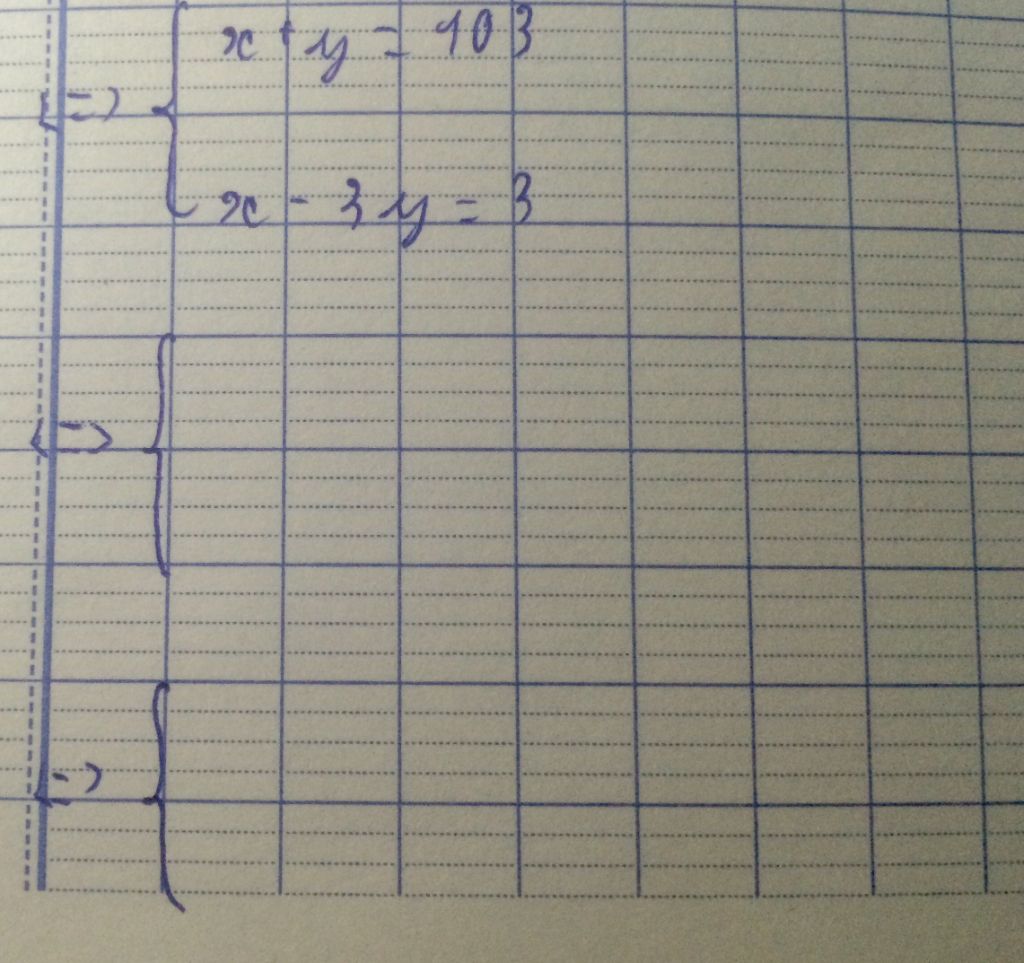 x + y = 103
<=> {
x - 3y = 3
<=> {
<=> {